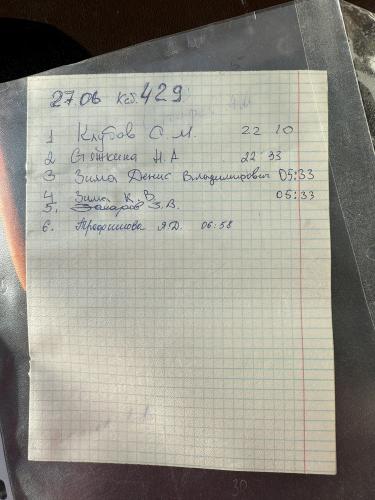 27.06 Каб. 429
1 Клубов С. М. 22 10
2 Н. А 22 33
3 Зима Денис Владимирович 05:33
4 Зима К. В 05:33
5. Захаров З.В.
6. Трофимова Я.Д. 06:58